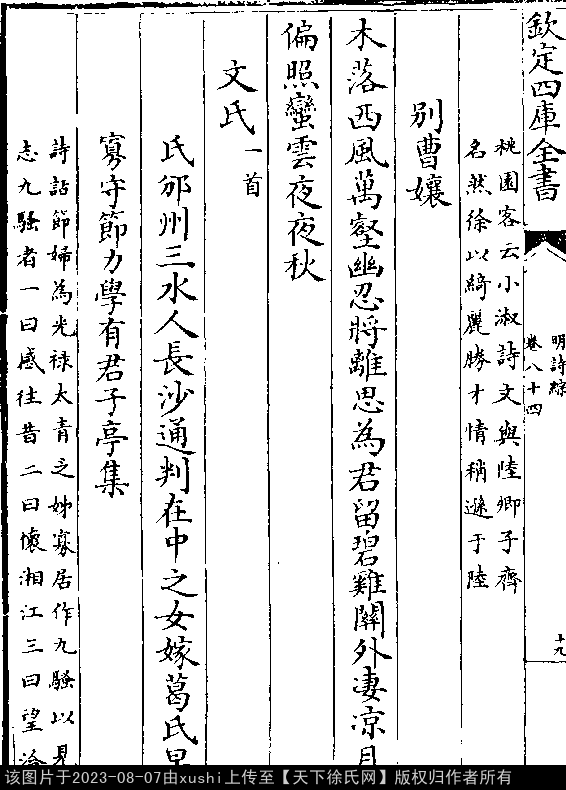 欽定四庫全書
明詩綜
卷八十四
十九
桃園客云小淑詩文與陸卿子齊
名然徐以綺麗勝才情稍遜于陸
别曹孃
木落西風萬壑幽忍將離思為君留碧雞關外凄凉月
偏照蠻雲夜夜秋
文氏一首
氏邠州三水人長沙通判在中之女嫁葛氏早
寡守節力學有君子亭集
詩話節婦為光禄太青之姊寡居作九騷以見
志九騷者一曰感往昔二曰懷湘江三曰望滄
该图片于2023-08-07由xushi上传至【天下徐氏网】版权归作者所有